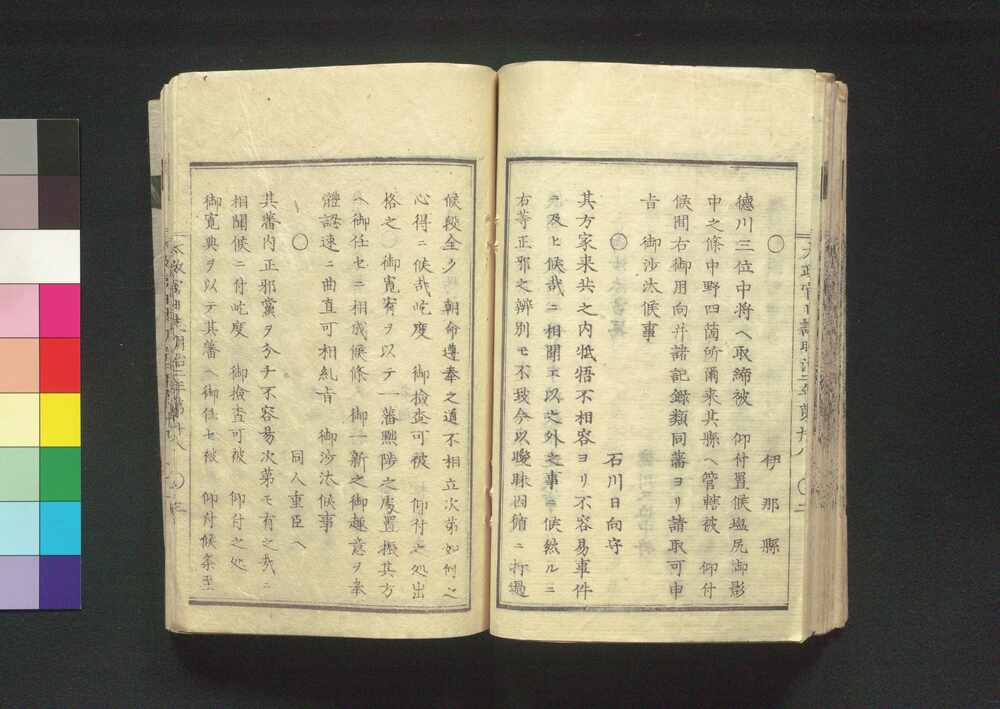 ○ 伊那縣
德川三位中将ヘ取締被 仰付置候塩尻御影
中之條中野四箇所爾来其縣ヘ管轄被 仰付
候間右御用向并諸記録類同藩ヨリ請取可申
旨 御沙汰候事
○ 石川日向守
其方家来共之内牴牾不相容ヨリ不容易事件
ニ及ヒ候哉ニ相聞エ以之外之事ニ候然ルニ
右等正邪之辨別モ不致今以曖昧因循ニ打過
候段全ク 朝命遵奉之道不相立次第如何之
心得ニ候哉屹度 御撿査可被 仰付之処出
格之 御寛宥ヲ以テ一藩黜陟之處置振其方
ヘ御任セニ相成候條 御一新之御趣意ヲ奉
體認速ニ曲直可相糺旨 御沙汰候事
○ 同人重臣ヘ
其藩内正邪黨ヲ分チ不容易次第モ有之哉ニ
相聞候ニ付屹度 御撿査可被 仰付之処
御寛典ヲ以テ其藩ヘ御任セ被 仰付候条至